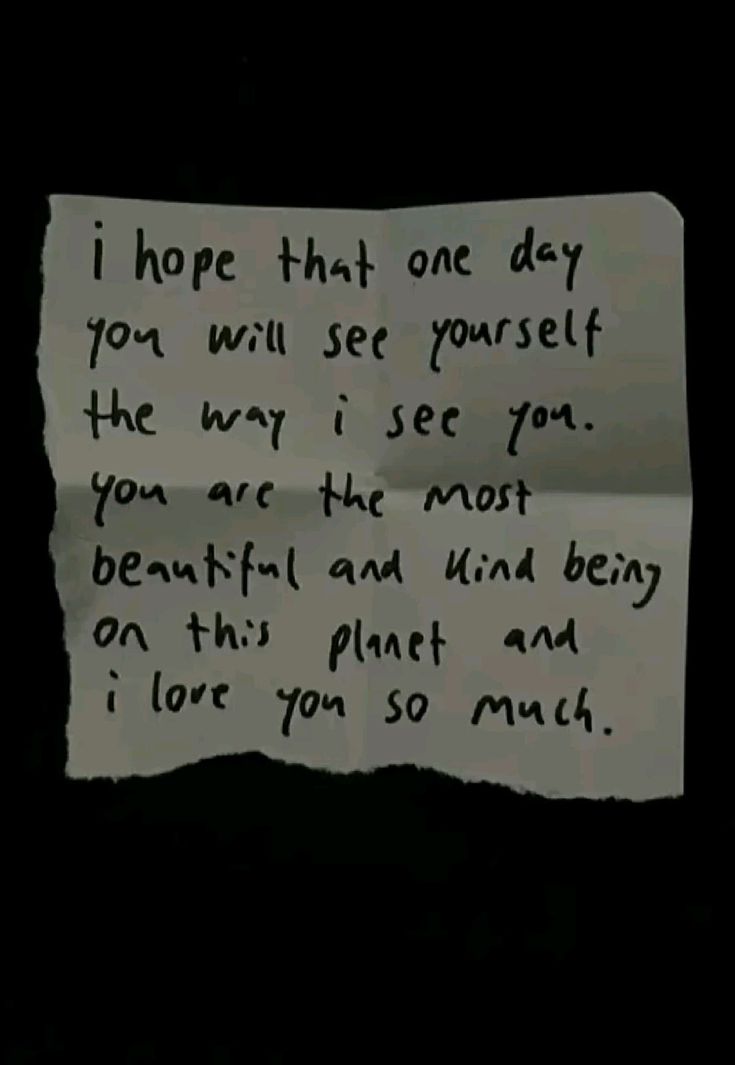 i hope that one day
you will see yourself
the way i see you.
you are the most
beautiful and kind being
on this planet and
i love you so much.